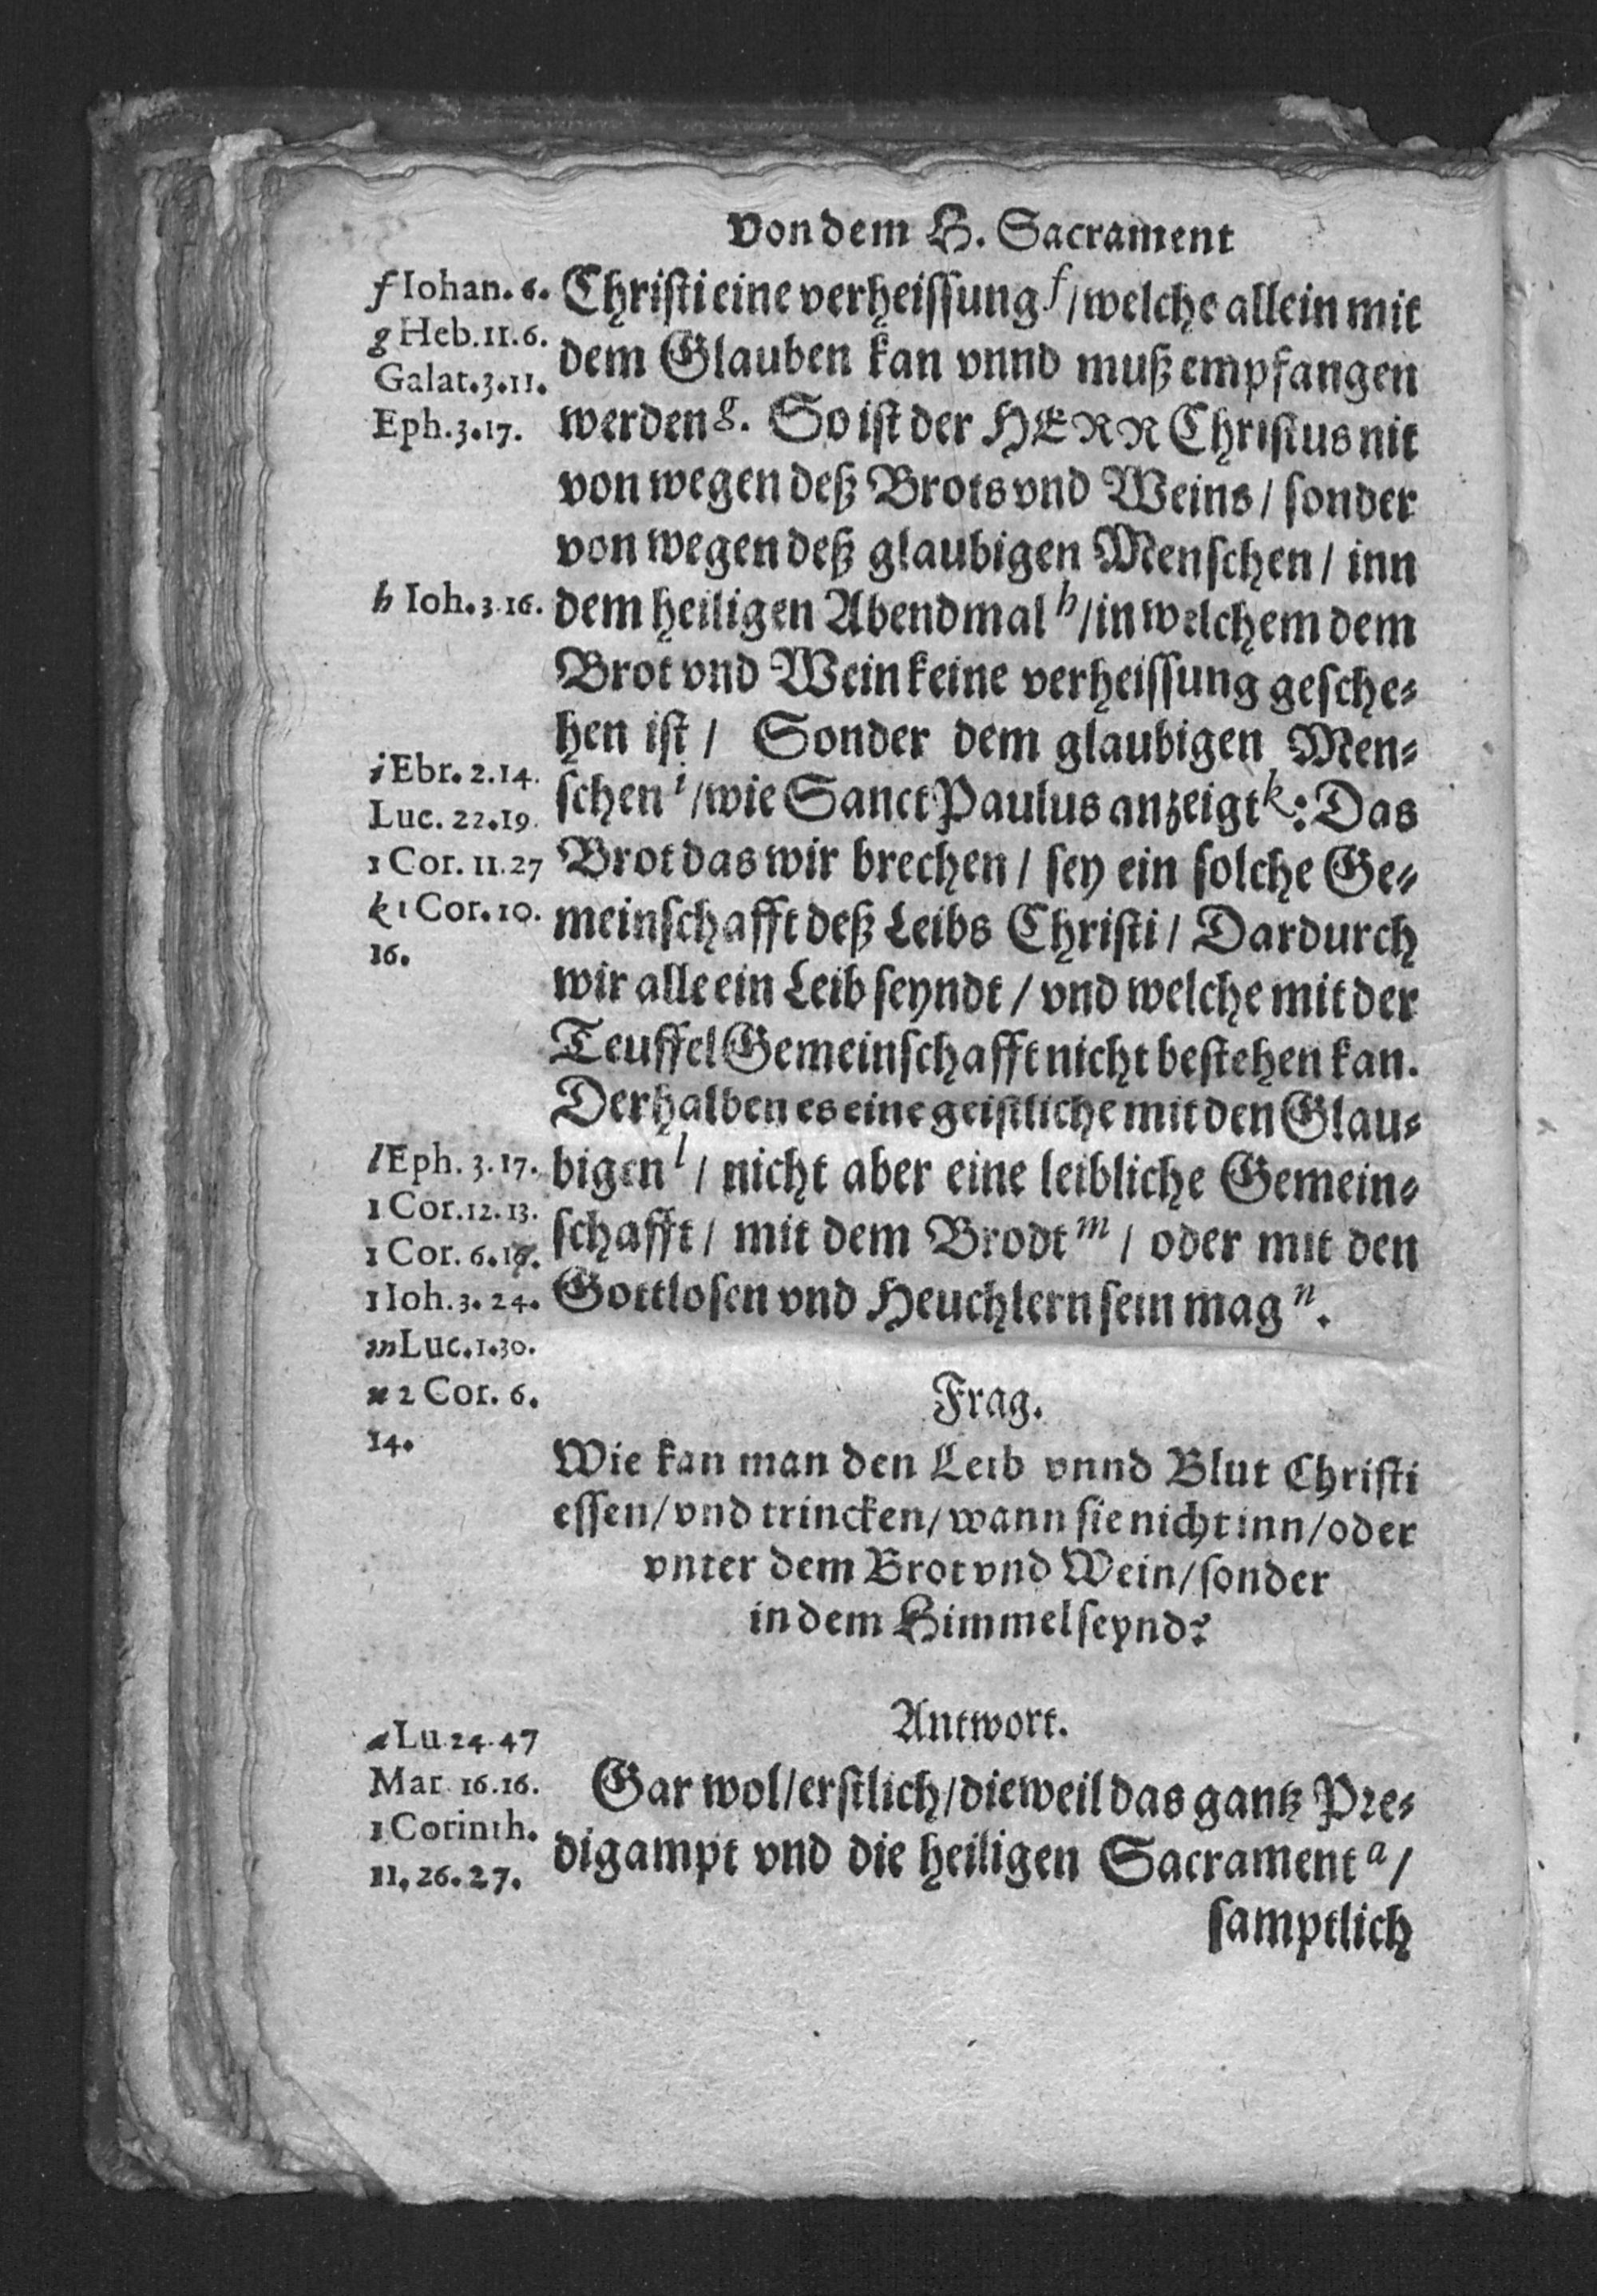 Von dem H. Sacrament
f Iohan. 6.
g Heb. 11. 6.
Galat. 3. 11.
Eph. 3. 17.
h Ioh. 3. 16.
i Ebr. 2. 14.
Luc. 22. 19.
1 Cor. 11. 27
k 1 Cor. 10.
16.
l Eph. 3. 17.
1 Cor. 12. 13.
1 Cor. 6.
1 Ioh. 3. 24.
m Luc. 1. 30.
n 2 Cor. 6.
14.
a Lu 24. 47
Mar 16. 16.
1 Corinth.
11, 26. 27.
Christi eine verheissung f / welche allein mit
dem Glauben kan vnnd muß empfangen
werden g. So ist der HERR Christus nit
von wegen deß Brots vnd Weins / sonder
von wegen deß glaubigen Menschen / inn
dem heiligen Abendmal h / in welchem dem
Brot vnd Wein keine verheissung gesche-
hen ist / Sonder dem glaubigen Men-
schen i / wie Sanct Paulus anzeigt k : Das
Brot das wir brechen / sey ein solche Ge-
meinschafft deß Leibs Christi / Dardurch
wir alle ein Leib seyndt / vnd welche mit der
Teuffel Gemeinschafft nicht bestehen kan.
Derhalben es eine geistliche mit den Glau-
bigen l / nicht aber eine leibliche Gemein-
schafft / mit dem Brodt m / oder mit den
Gottlosen vnd Heuchlern sein mag n.
Frag.
Wie kan man den Leib vnnd Blut Christi
essen / vnd trincken / wann sie nicht inn / oder
vnter dem Brot vnd Wein / sonder
in dem Himmel seynd?
Antwort.
Gar wol / erstlich / dieweil das gantz Pre-
digampt vnd die heiligen Sacrament a /
samptlich